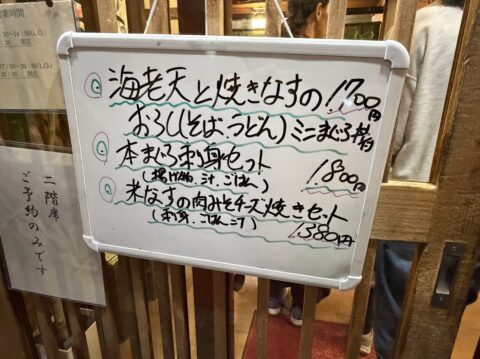 海老天と焼きなすの 1700円
おろし(そば、うどん)ミニまぐろ丼付
本まぐろ刺身セット 1,800円
(揚げ物、汁、ごはん)
米なすの肉みそチーズ焼きセット
1,380円
二階席
ご予約のみです